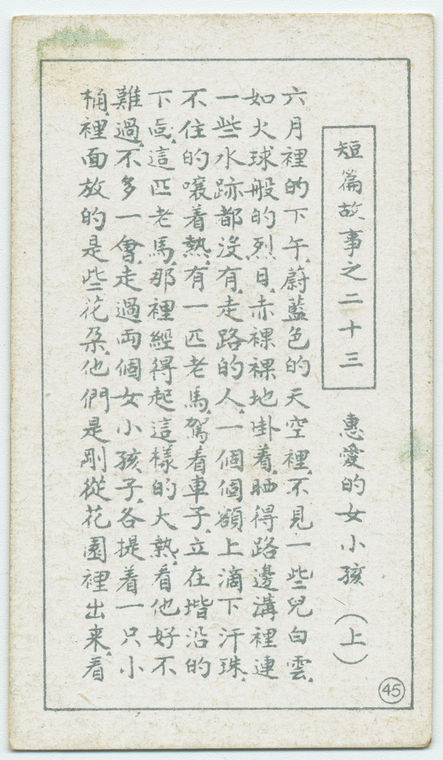 短篇故事之二十三　惠愛的女小孩（上）
六月裡的下午.蔚藍色的天空裡.不見一些兒白雲.
如火球般的烈日.赤裸裸地掛着.晒得路邊溝裡連
一些水跡都沒有.走路的人.一個個額上滴下汗珠.
不住的嚷着熱.有一匹老馬.駕着車子.立在堦沿的
下靣.這匹老馬.那裡經得起這樣的大熱.看他好不
難過.不多一會走過両個女小孩子.各提着一只小
桶.裡面放的是些花朶.他們是剛從花園裡出来.看
45